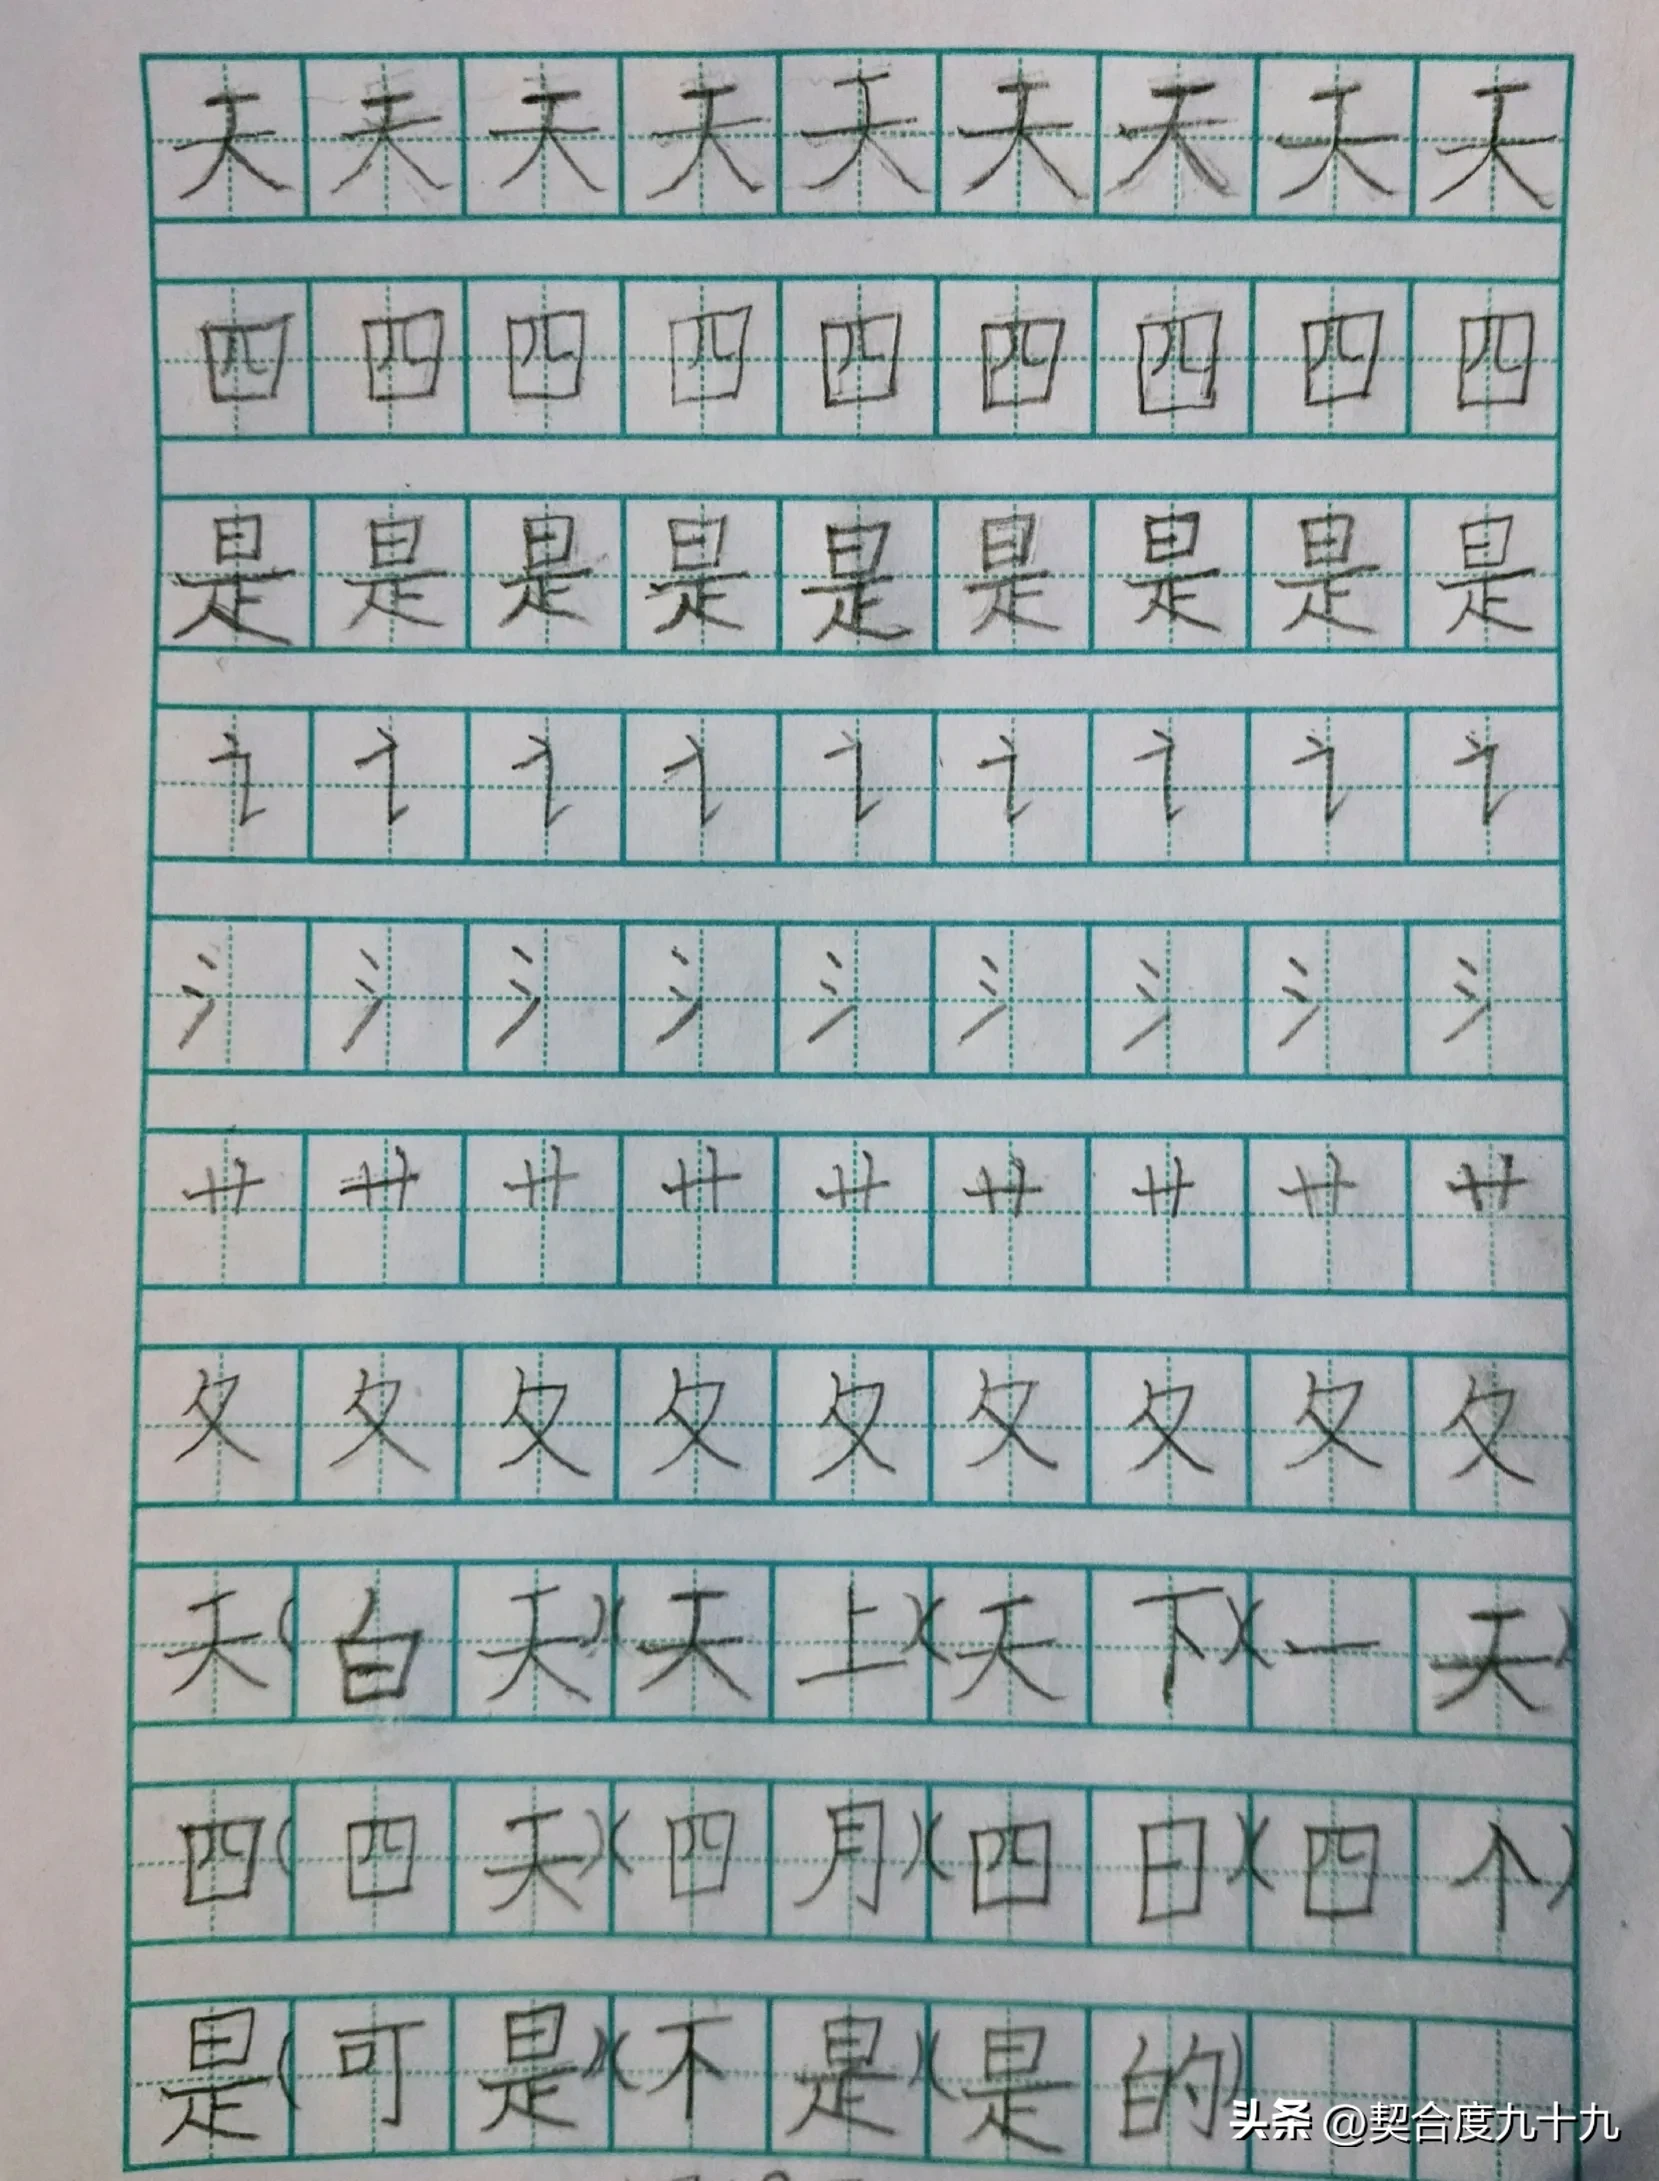 天天天天天天天天天
四四四四四四四四四
是是是是是是是是是
讠讠讠讠讠讠讠讠讠
氵氵氵氵氵氵氵氵氵
艹艹艹艹艹艹艹艹艹
夂夂夂夂夂夂夂夂夂
天(白天)(天上)(天下)(一天)
四(四天)(四月)(四日)(四个)
是(可是)(不是)(是的)
头条 @契合度九十九